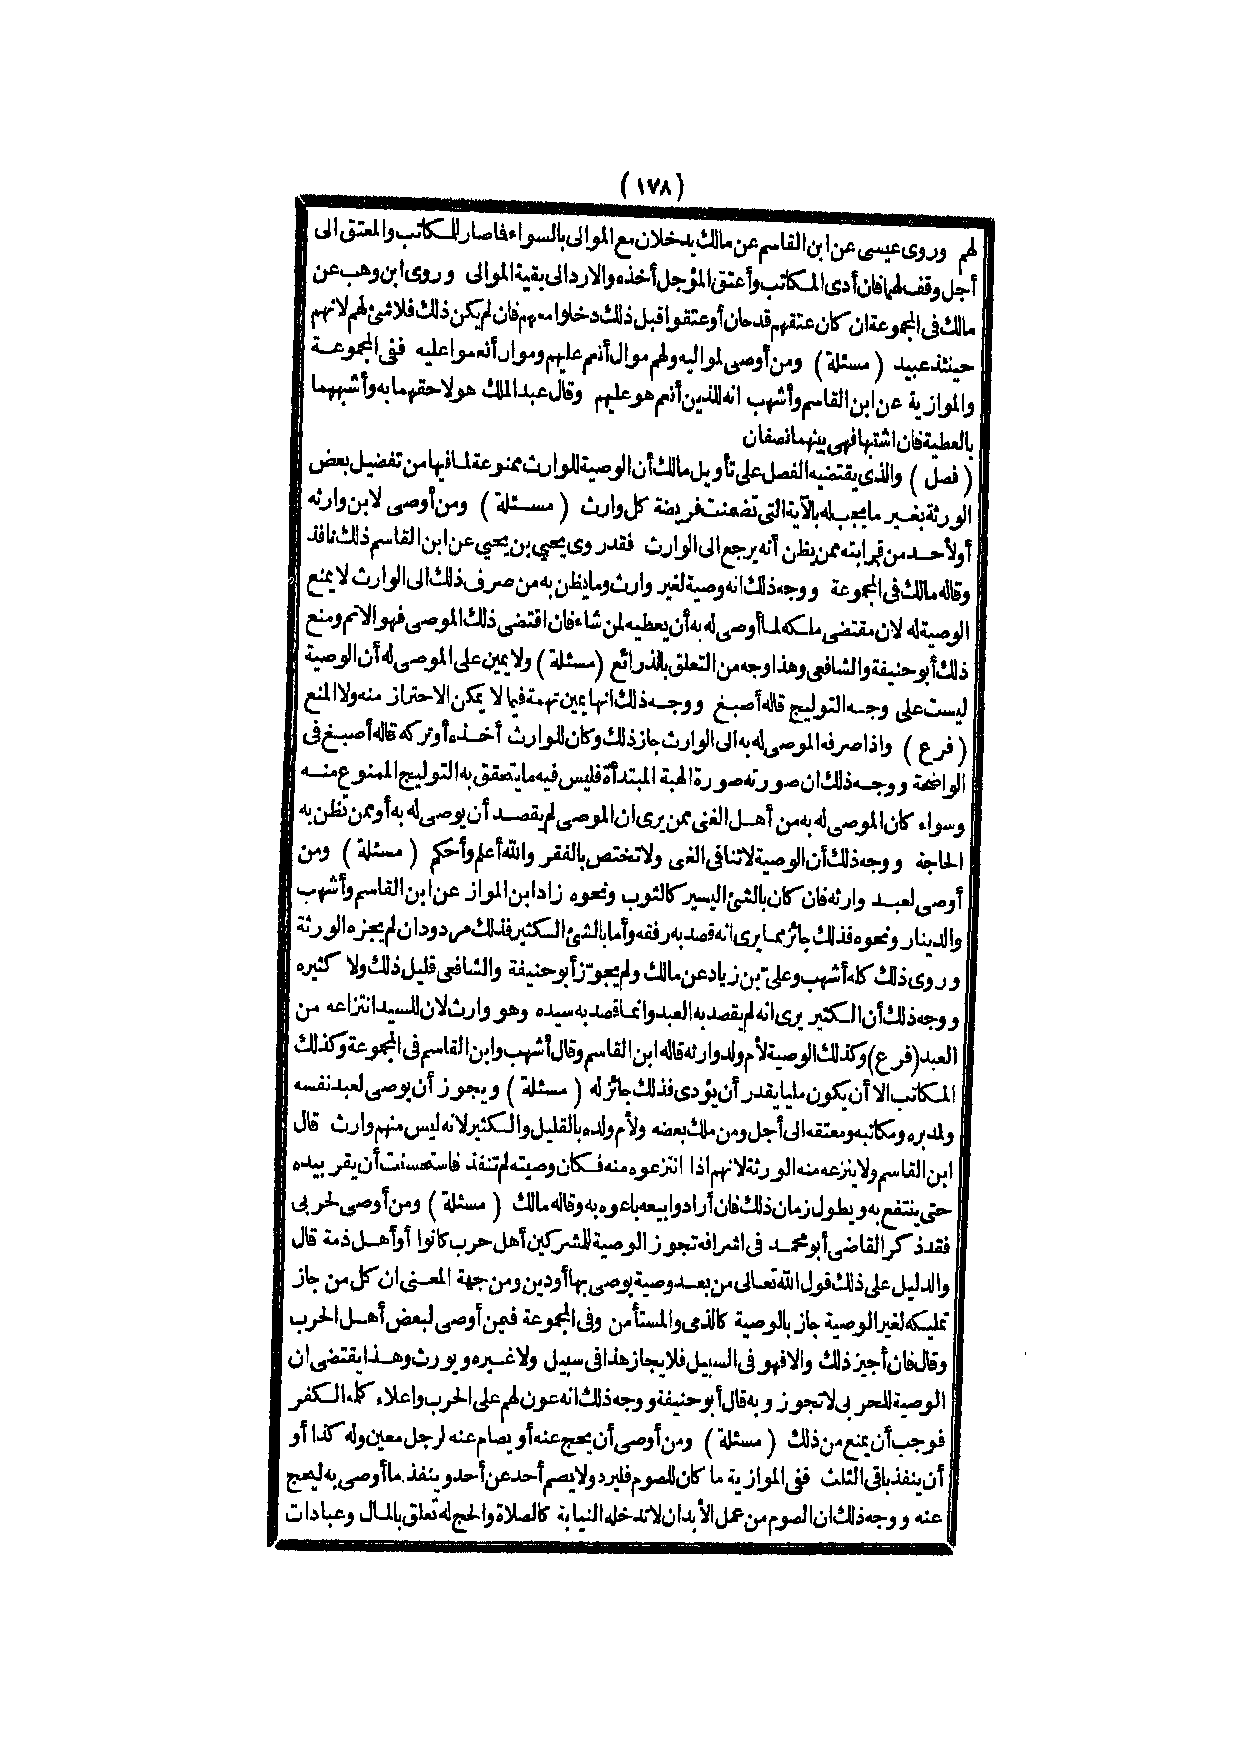 (١٧٨)
لهم وروى عيسى عن ابن القاسم عن مالك يدخلان مع الموالى بالسواء فما صار للمكاتب والمعتق الى
أجل وقف لهما فان أدى المكاتب وأعتق المؤجل أخذه والا رد الى بقية الموالى وروى ابن وهب عن
مالك فى المجموعة ان كان عتقهم قد حان أو عتقوا قبل ذلك دخلوا معهم فان لم يكن ذلك فلا شئ لهم لانهم
حينئذ عبيد (مسئلة) ومن أوصى لمواليه ولهم موال أنعم عليهم وموار أنعموا عليه ففى المجموعة
والموازية عن ابن القاسم وأشهب انه للذين أنعم هو عليهم وقال عبد الملك هو لاحقهما به وأشبههما
بالعطية فان اشتبها فهى بينهما نصفان
(فصل) والذى يقتضيه الفصل على تأويل مالك أن الوصية للوارث ممنوعة لما فيها من تفضيل بعض
الورثة بغير ما يجب له بالآية التى تضمنت فريضة كل وارث (مسئلة) ومن أوصى لابن وارثه
أو لأحد من قرابته ممن يظن أنه يرجع الى الوارث فقد روى يحيى بن يحيى عن ابن القاسم ذلك نافذ
وقاله مالك فى المجموعة ووجه ذلك انه وصية لغير وارث وما يظن به من صرف ذلك الى الوارث لا يمنع
الوصية له لان مقتضى ملكه لما أوصى له به أن يعطيه لمن شاء فان اقتضى ذلك الموصى فهو الاثم ومنع
ذلك أبو حنيفة والشافعى وهذا وجه من التعلق بالذرائع (مسئلة) ولا يمين على الموصى له أن الوصية
ليست على وجه التوليج قاله أصبغ ووجه ذلك انها يمين تهمة فيما لا يمكن الاحتراز منه ولا المنع
(فرع) واذا صرفه الموصى له به الى الوارث جاز ذلك وكان للوارث أخذه أو تركه قاله أصبغ فى
الواضحة ووجه ذلك ان صورته صورة الهبة المبتدأة فليس فيه ما يتحقق به التوليج الممنوع منه
وسواء كان الموصى له به من أهل الغنى ممن يرى ان الموصى لم يقصد أن يوصى له به أو ممن تظن به
الحاجة ووجه ذلك أن الوصية لا تنافى الغنى ولا تختص بالفقر والله أعلم وأحكم (مسئلة) ومن
أوصى لعبد وارثه فان كان بالشئ اليسير كالثوب ونحوه زاد ابن المواز عن ابن القاسم وأشهب
والدينار ونحوه فذلك جائز مما يرى انه قصد به رفقه وأما بالشئ الكثير فذلك مردود ان لم يجزه الورثة
وروى ذلك كله أشهب وعلىّ بن زياد عن مالك ولم يجوّز أبو حنيفة والشافعى قليل ذلك ولا كثيره
ووجه ذلك أن الكثير يرى انه لم يقصد به العبد وانما قصد به سيده وهو وارث لان للسيد انتزاعه من
العبد (فرع) وكذلك الوصية لأم ولد وارثه قاله ابن القاسم وقال أشهب وابن القاسم فى المجموعة وكذلك
المكاتب الا أن يكون مليا يقدر أن يؤدى فذلك جائز له (مسئلة) ويجوز أن يوصى لعبد نفسه
ولمدبره ومكاتبه ومعتقه الى أجل ومن ملك بعضه ولأم ولده بالقليل والكثير لانه ليس منهم وارث قال
ابن القاسم ولا ينزعه منه الورثة لانهم اذا انتزعوه منه فكان وصيته لم تنفذ فاستحسنت أن يقر بيده
حتى ينتفع به ويطول زمان ذلك فان أرادوا بيعه باعوه به وقاله مالك (مسئلة) ومن أوصى لحربى
فقد ذكر القاضى أبو محمد فى اشرافه تجوز الوصية للمشركين أهل حرب كانوا أو أهل ذمة قال
والدليل على ذلك قول الله تعالى من بعد وصية يوصى بها أو دين ومن جهة المعنى ان كل من جاز
تمليكه لغير الوصية جاز بالوصية كالذمى والمستأمن وفى المجموعة فيمن أوصى لبعض أهل الحرب
وقال فان أجيز ذلك والا فهو فى السبيل فلا يجاز هذا فى سبيل ولا غيره ويورث وهذا يقتضى ان
الوصية للحربى لا تجوز وبه قال أبو حنيفة ووجه ذلك انه عون لهم على الحرب واعلاء كلمة الكفر
فوجب أن يمنع من ذلك (مسئلة) ومن أوصى أن يحج عنه أو يصام عنه لرجل معين وله كذا أو
أن ينفذ باقى الثلث ففى الموازية ما كان للصوم فليرد ولا يصم أحد عن أحد وينفذ ما أوصى به ليحج
عنه ووجه ذلك ان الصوم من عمل الأبدان لا تدخله النيابة كالصلاة والحج له تعلق بالمال وعبادات